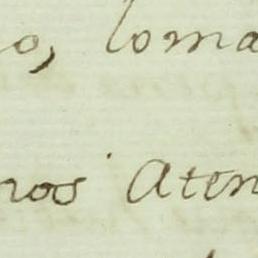 o, loma
ros Aten